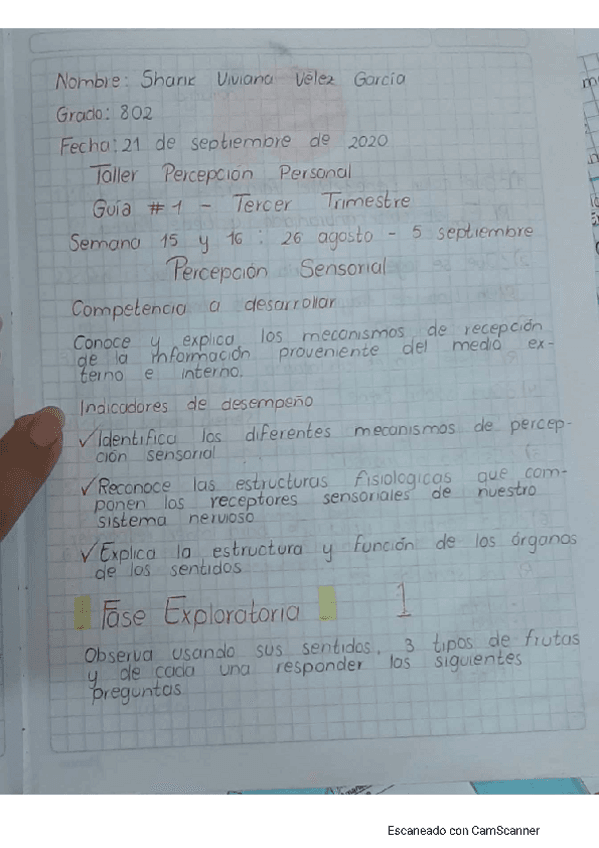 Nombre: Sharik Viviana Vélez García
Grado: 802
Fecha: 21 de septiembre de 2020
Taller Percepción Personal
Guía #1 - Tercer Trimestre
Semana 15 y 16 : 26 agosto - 5 septiembre
Percepción Sensorial
Competencia a desarrollar
Conoce y explica los mecanismos de recepción
de la información proveniente del medio ex-
terno e interno.
Indicadores de desempeño
✓Identifica los diferentes mecanismos de percep-
ción sensorial
✓Reconoce las estructuras fisiologicas que com-
ponen los receptores sensoriales de nuestro
sistema nervioso
✓Explica la estructura y función de los órganos
de los sentidos
Fase Exploratoria 1
Observa usando sus sentidos, 3 tipos de frutas
y de cada una responder las siguientes
preguntas
Escaneado con CamScanner